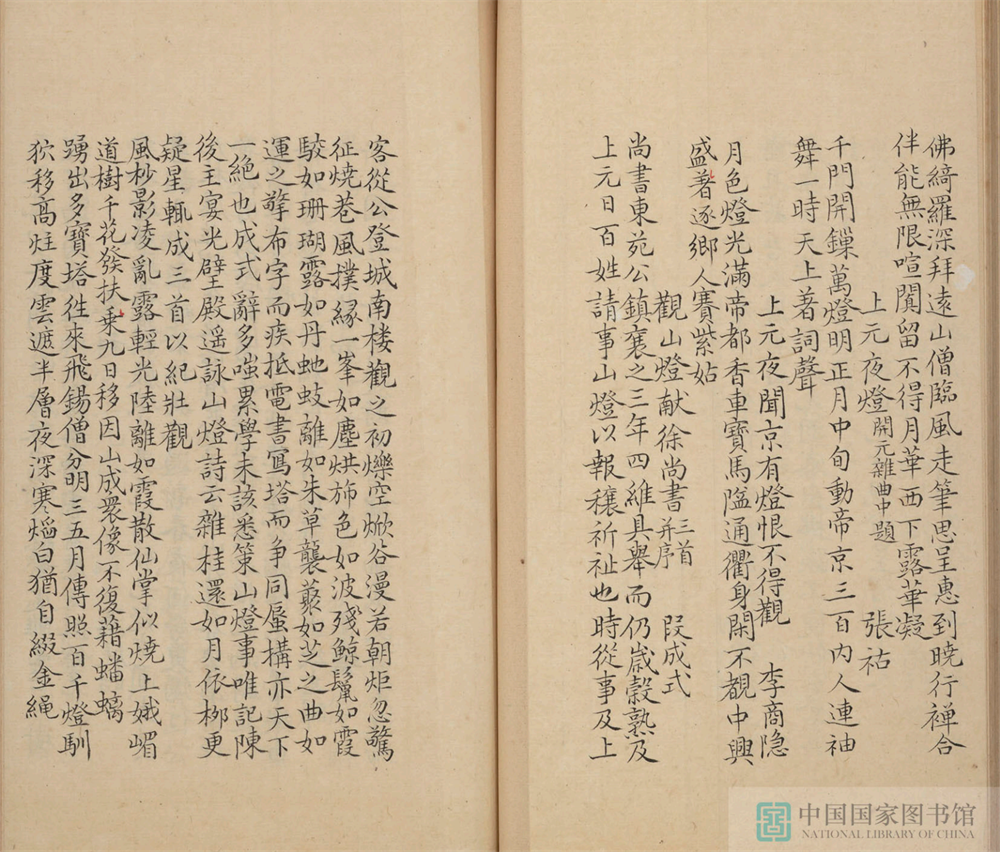 佛綺羅深拜遠山僧臨風走筆思呈惠到曉行禪合
伴能無限喧闐留不得月華西下露華凝
上元夜燈開元雜曲中題 張祜
千門開鏁萬燈明正月中旬動帝京三百内人連袖
舞一時天上著詞聲
上元夜聞京有燈恨不得觀 李商隱
月色燈光滿帝都香車寶馬隘通衢身閑不覩中興
盛著逐鄉人賽紫姑
觀山燈献徐尚書三首并序 段成式
尚書東苑公鎮襄之三年四維具舉而仍歲穀熟及
上元日百姓請事山燈以報穰祈祉也時從事及上
客從公登城南楼觀之初爍空焮谷漫若朝炬忽驚
征燒巷風撲緣一峯如塵烘斾色如波殘鲸鬣如霞
駮如珊瑚露如丹虵蚑離如朱草襲藂如芝之曲如
運之擎布字而疾抵電書寫塔而争同蜃搆亦天下
一絶也成式辭多嗤累學未該悉策山燈事唯記陳
後主宴光壁殿遥詠山燈詩云雜桂還如月依栁更
疑星輒成三首以紀壯觀
風杪影凌亂露輕光陸離如霞散仙掌似燒上娥嵋
道樹千花發扶乗九日移因山成衆像不復藉蟠螭
踴出多寶塔徃來飛錫僧分明三五月傳照百千燈馴
狖移高炷度雲遮半層夜深寒熖白猶自綴金繩
中国国家图书馆
NATIONAL LIBRARY OF CHINA